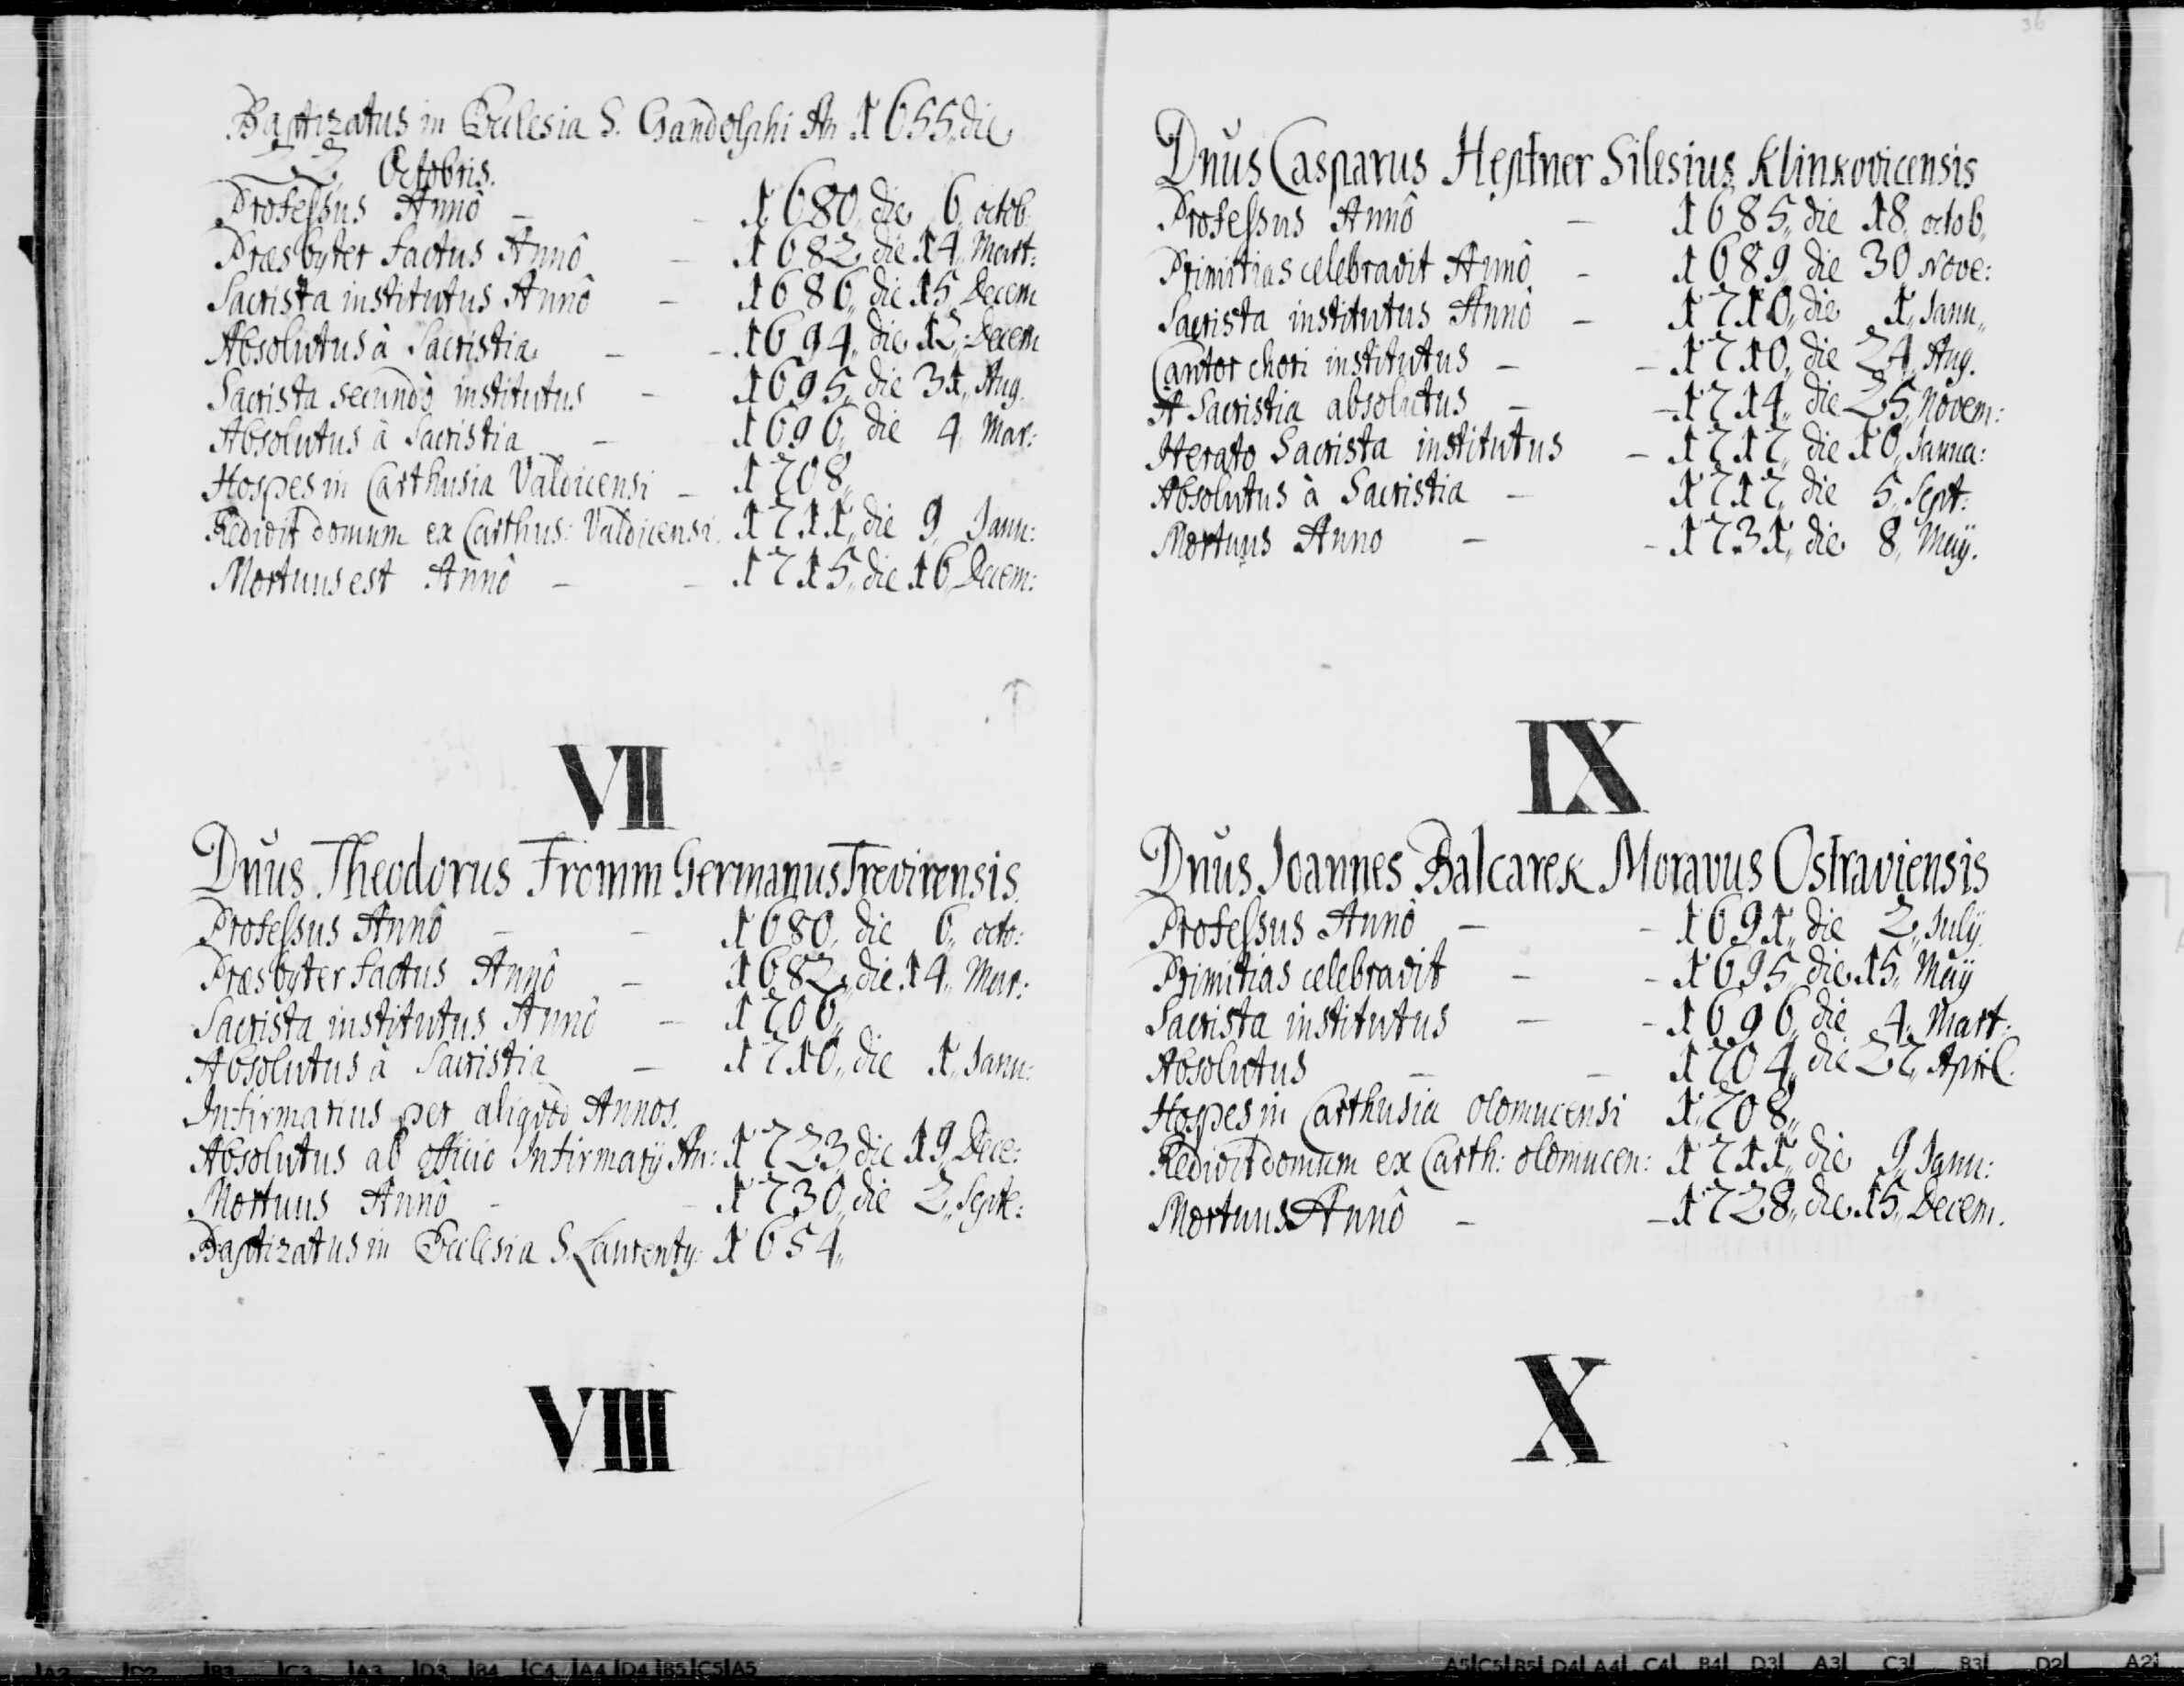 Baptizatus in Ecclesia S. Gandolphi An 1655. die
22 Octobris.
Professus Annô — — 1680, die 6 octob:
Præsbyter factus Annô — 1682, die 14, Mart:
Sacrista institutus Annô — 1686,, die 15, Decem
Absolutus à Sacristia — — 1694,, die 12,, Decem
Sacrista secundô institutus — 1695,, die 31,, Aug.
Absolutus à Sacristia — 1696,, die 4, Mar:
Hospes in Carthusia Valdicensi — 1708,,
Redivit domum ex Carthus: Valdicensi. 1711,, die 9,, Janu:
Mortuus est Annô — — 1715,, die 16,, Decem:
VII
Dnus Theodorus Fromm Germanus Trevirensis.
Professus Annô — — 1680,, die 6,, octo:
Præsbyter factus Annô — 1682,, die 14,, Mar:
Sacrista institutus Annô — 1706,,
Absolutus à Sacristia — 1710,, die 1,, Janu:
Infirmarius per aliquod Annos.
Absolutus ab officio Infirmarÿ An: 1723,, die 19,, Dece:
Mortuus Annô - - 1730,, die 2,, Septe:
Baptizatus in Ecclesia S. Laurentÿ. 1654,,
VIII
36
Dnus Casparus Heptner Silesius Klinkovicensis
Professus Annô — 1685,, die 18, octob,
Primitias celebravit Annô - 1689,, die 30 Nove:
Sacrista institutus Annô — 1710,, die 1,, Janu,,
Cantor chori institutus — — 1710,, die 24,, Aug.
A Sacristia absolutus — — 1714,, die 25,, Novem:
Iterato Sacrista institutus — 1717,, die 10,, Janua:
Absolutus à Sacristia — 1717,, die 5,, Sept:
Mortuus Anno — — 1731,, die 8,, Maÿ.
IX
Dnus Joannes Balcarek Moravus Ostraviensis
Professus Annô — - 1691,, die 2,, Julÿ.
Primitias celebravit — - 1695,, die 15,, Maÿ
Sacrista institutus — - 1696,, die 4,, Mart:
Absolutus — — 1704,, die 27,, April.
Hospes in Carthusia olomucensi 1708,,
Redivit domum ex Carth: olomucen: 1711,, die 9,, Janu:
Mortuus Annô — — 1728,, die 15,, Decem.
X
A2 D2 B3 C3 A3 D3 B4 C4 A4 D4 B5 C5 A5
A5 C5 B5 D4 A4 C4 B4 D3 A3 C3 B3 D2 A2